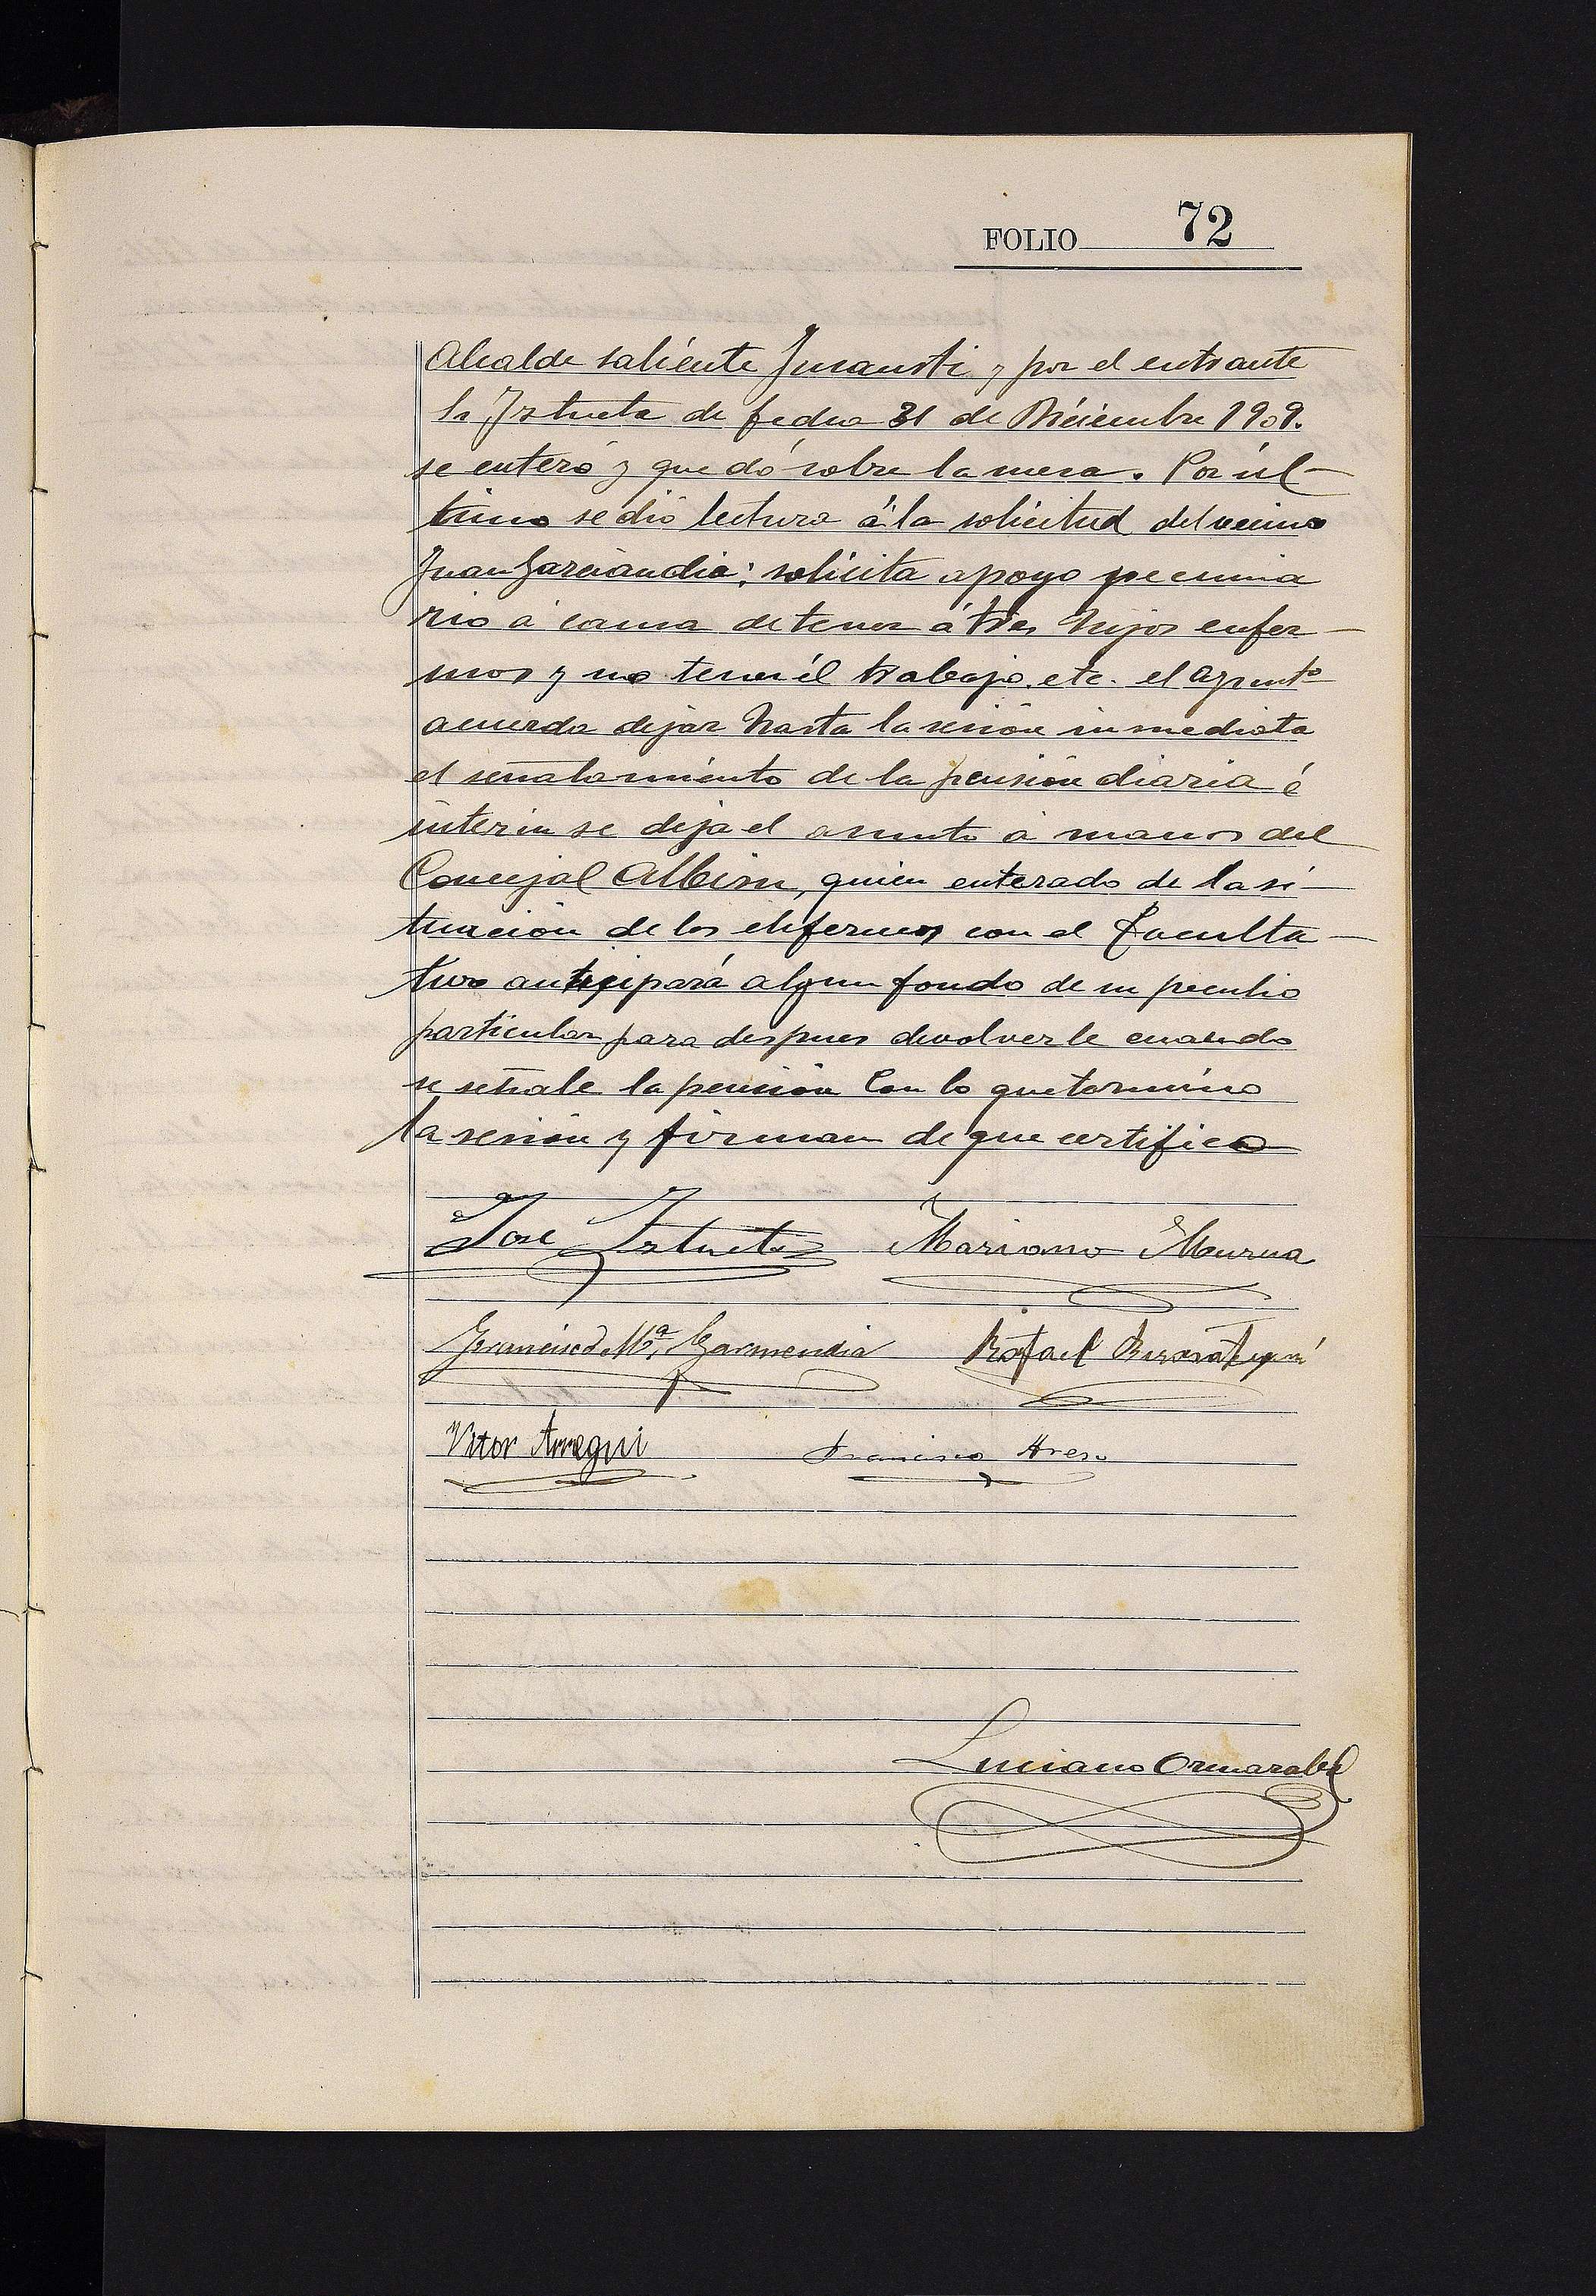 FOLIO 72
Alcalde saliente Insausti y por el entrante
Sr Iztueta de fecha 31 de Diciembre 1909.
se enteró y quedó sobre la mesa. Por úl-
timo se dió lectura á la solicitud del vecino
Juan Garciandia: solicita apoyo pecunia
rio á causa de tener á tres hijos enfer-
mos y no tener él trabajo. etc. el Ayuntº
acuerda dejar hasta la sesión inmediata
el señalamiento de la pensión diaria é
interin se deja el asunto á manos del
Concejal Albisu, quien enterado de la si-
tuación de los enfermos con el Faculta-
tivo anticipará algun fondo de su peculio
particular para despues devolverle cuando
se señale la pensión Con lo que terminó
la sesión y firman de que certifico
José Iztueta Mariano Murua
Francisco Mª Garmendia Rafael Berasategui
Vitor Arregui Francisco Areso
Luciano Ormazabal